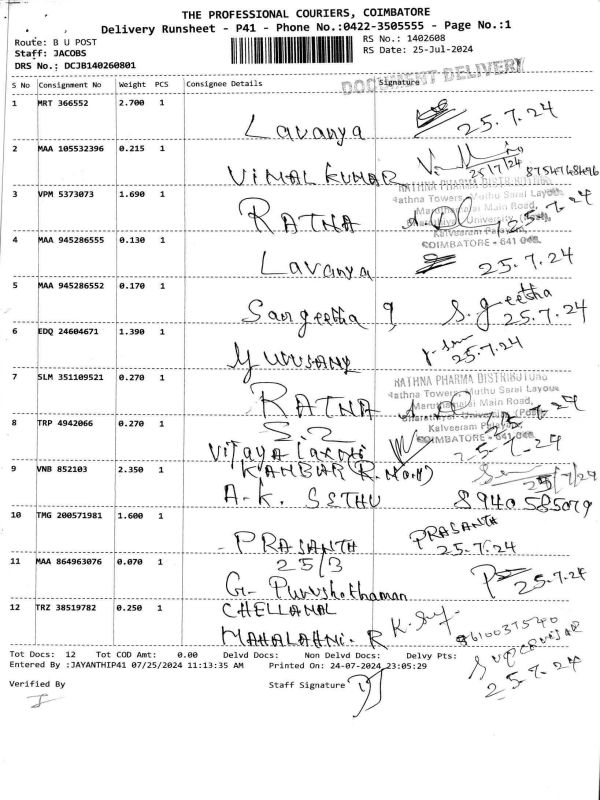 THE PROFESSIONAL COURIERS, COIMBATORE
Delivery Runsheet - P41 - Phone No.:0422-3505555 - Page No.:1
Route: B U POST
RS No.: 1402608
Staff: JACOBS
RS Date: 25-Jul-2024
DRS No.: DCJB140260801
DOCUMENT DELIVERY
S No Consignment No Weight PCS Consignee Details Signature
1 MRT 366552 2.700 1
Lavanya 25.7.24
2 MAA 105532396 0.215 1
VIMAL KUMAR 25/7/24
3 VPM 5373073 1.690 1
RATHNA PHARMA DISTRIBUTORS
Rathna Towers, Muthu Sarai Layout
Maruthamalai Main Road,
Bharathiyar University (Post)
Kalveeram Palayam,
COIMBATORE - 641 046.
RATNA 25.7.24
4 MAA 945286555 0.130 1
Lavanya 25.7.24
5 MAA 945286552 0.170 1
Sangeetha S. geetha
25.7.24
6 EDQ 24604671 1.390 1
25.7.24
7 SLM 351109521 0.270 1
RATHNA PHARMA DISTRIBUTORS
Rathna Towers, Muthu Sarai Layout
Maruthamalai Main Road,
Bharathiyar University (Post)
Kalveeram Palayam,
COIMBATORE - 641 046.
RATNA
8 TRP 4942066 0.270 1
S.2
VIJAYA LAXMI
25-7-24
9 VNB 852103 2.350 1
25/7/24
A.K. SETHU 8940585079
10 TMG 200571981 1.600 1
PRASANTH PRASANTH
25.7.24
11 MAA 864963076 0.070 1
25/3
G. Purushothaman 25.7.24
12 TRZ 38519782 0.250 1
CHELLAMAL
R
9610037540
SUPERVISAR
25.7.24
Tot Docs: 12 Tot COD Amt: 0.00 Delvd Docs: Non Delvd Docs: Delvy Pts:
Entered By :JAYANTHIP41 07/25/2024 11:13:35 AM Printed On: 24-07-2024 23:05:29
Verified By Staff Signature